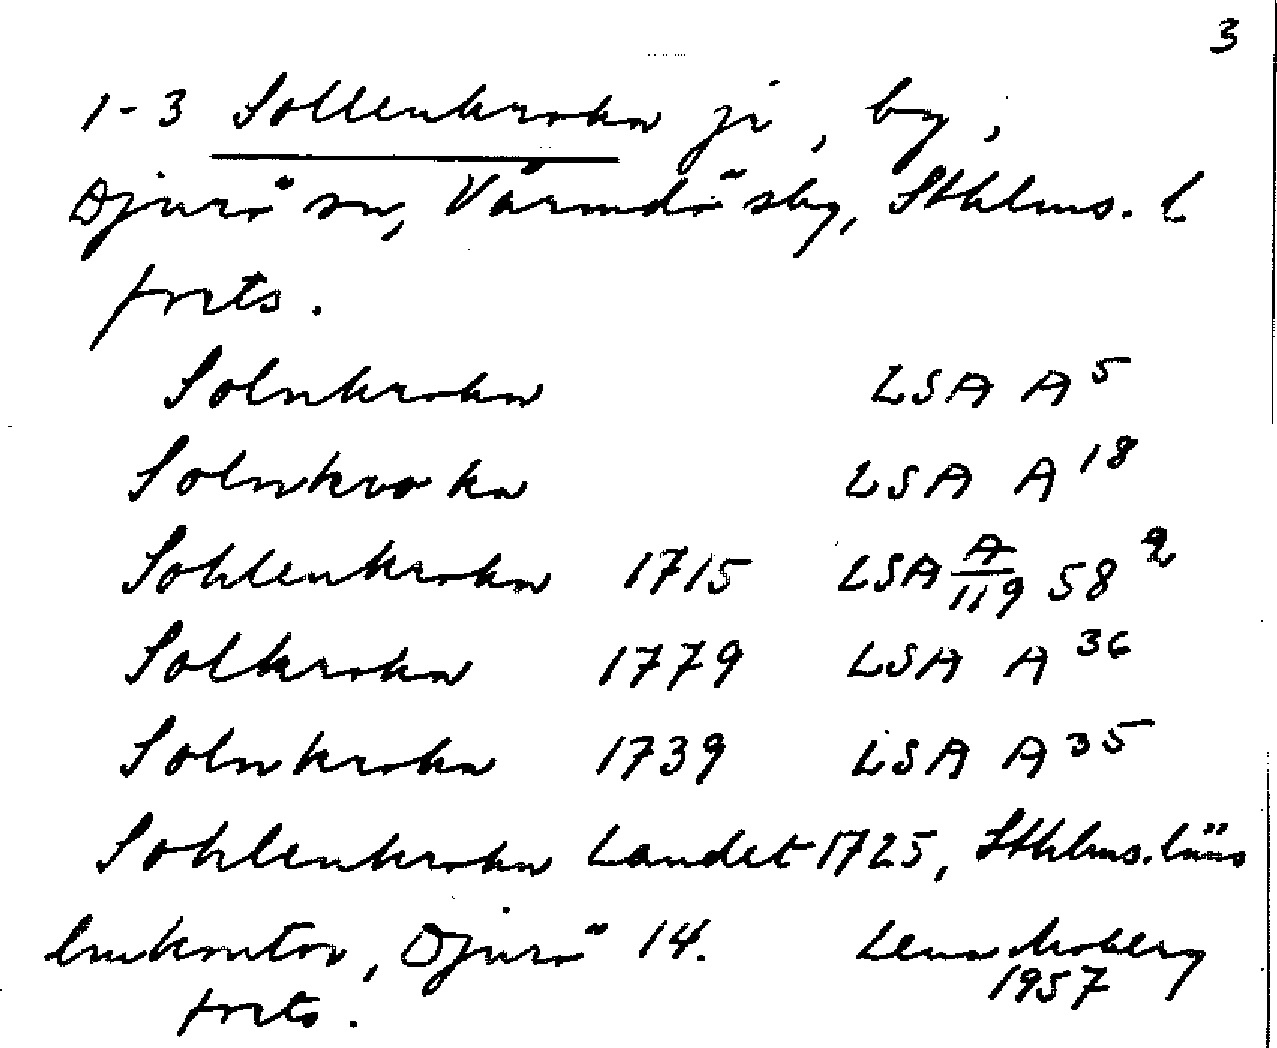 3
1-3 Sollenkroka ji, by,
Djurö sn, Värmdö sbg, Sthlms. l
forts.
Solnkroka LSA A 5
Solnkroka LSA A 18
Sohlenkroka 1715 LSA A/119 58 2
Solkroka 1779 LSA A 36
Solnkroka 1739 LSA A 35
Sohlenkroka Landet 1725, Sthlms. läns
lmkontor, Djurö 14. Lena Moberg
1957
forts.